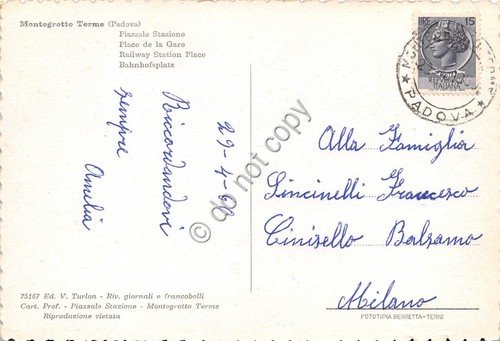 Montegrotto Terme (Padova)
Piazzale Stazione
Place de la Gare
Railway Station Place
Bahnhofsplatz
29-4-
Riccordandovi
sempre
Amelia
LIRE 15
PADOVA
Alla Famiglia
Lincinelli Francesco
Cinisello Balsamo
Milano
do not copy
75187 Ed. V. Turlon - Riv. giornali e francobolli
Cart. Prof. - Piazzale Stazione - Montegrotto Terme
Riproduzione vietata
FOTOTIPIA BERRETTA - TERNI